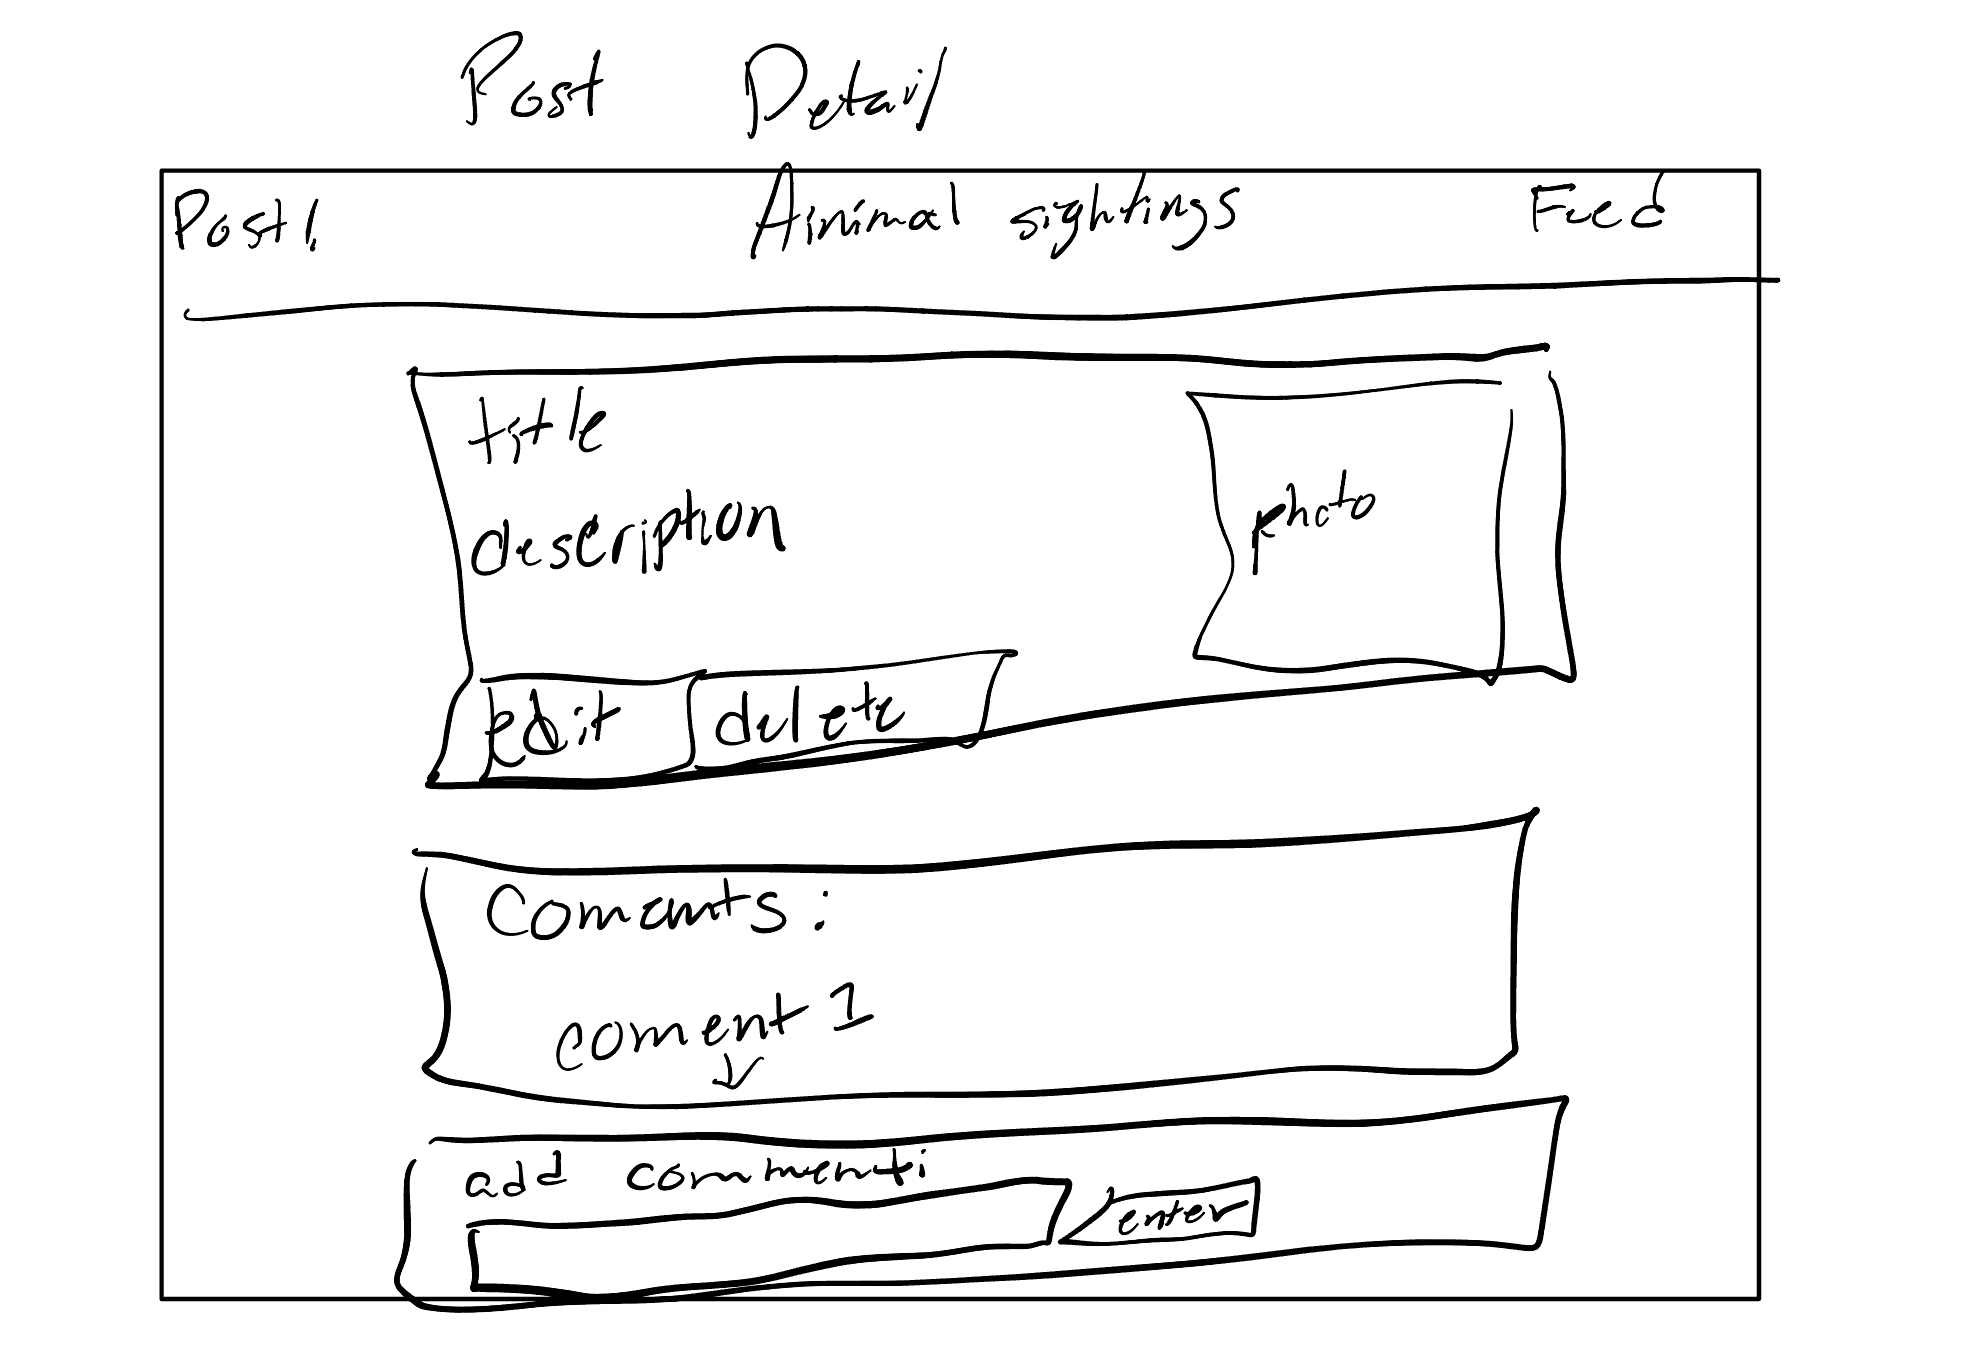 Post Detail
Post! Ainimal sightings Feed
title
description
photo
edit delete
Coments:
coment 1
add comment:
enter